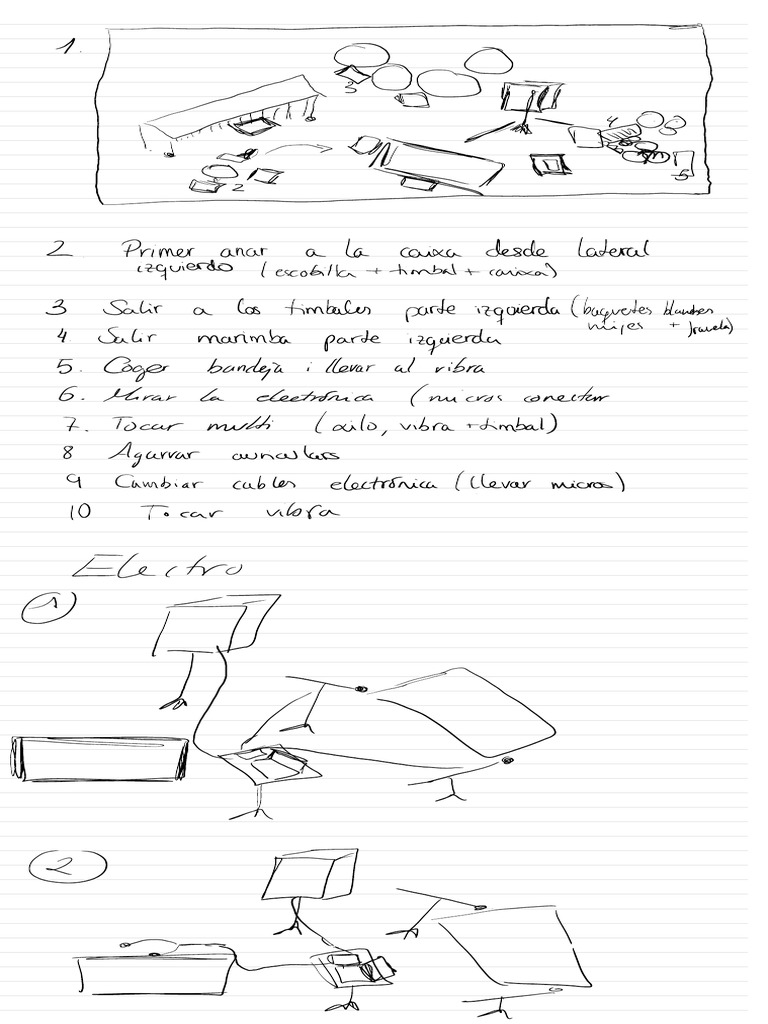 1.
3
4
2
5
2 Primer anar a la caixa desde lateral
izquierdo (escobilla + timbal + caixa)
3 Salir a los timbales parte izquierda (baquetes blandes
mijes + )
4 Salir marimba parte izquierda
5. Coger bandeja i llevar al vibra
6. Mirar la electrónica (micros conectar
7. Tocar multi (xilo, vibra + timbal)
8 Agarrar
9 Cambiar cables electrónica (llevar micros)
10 Tocar vibra
Electro
1
2